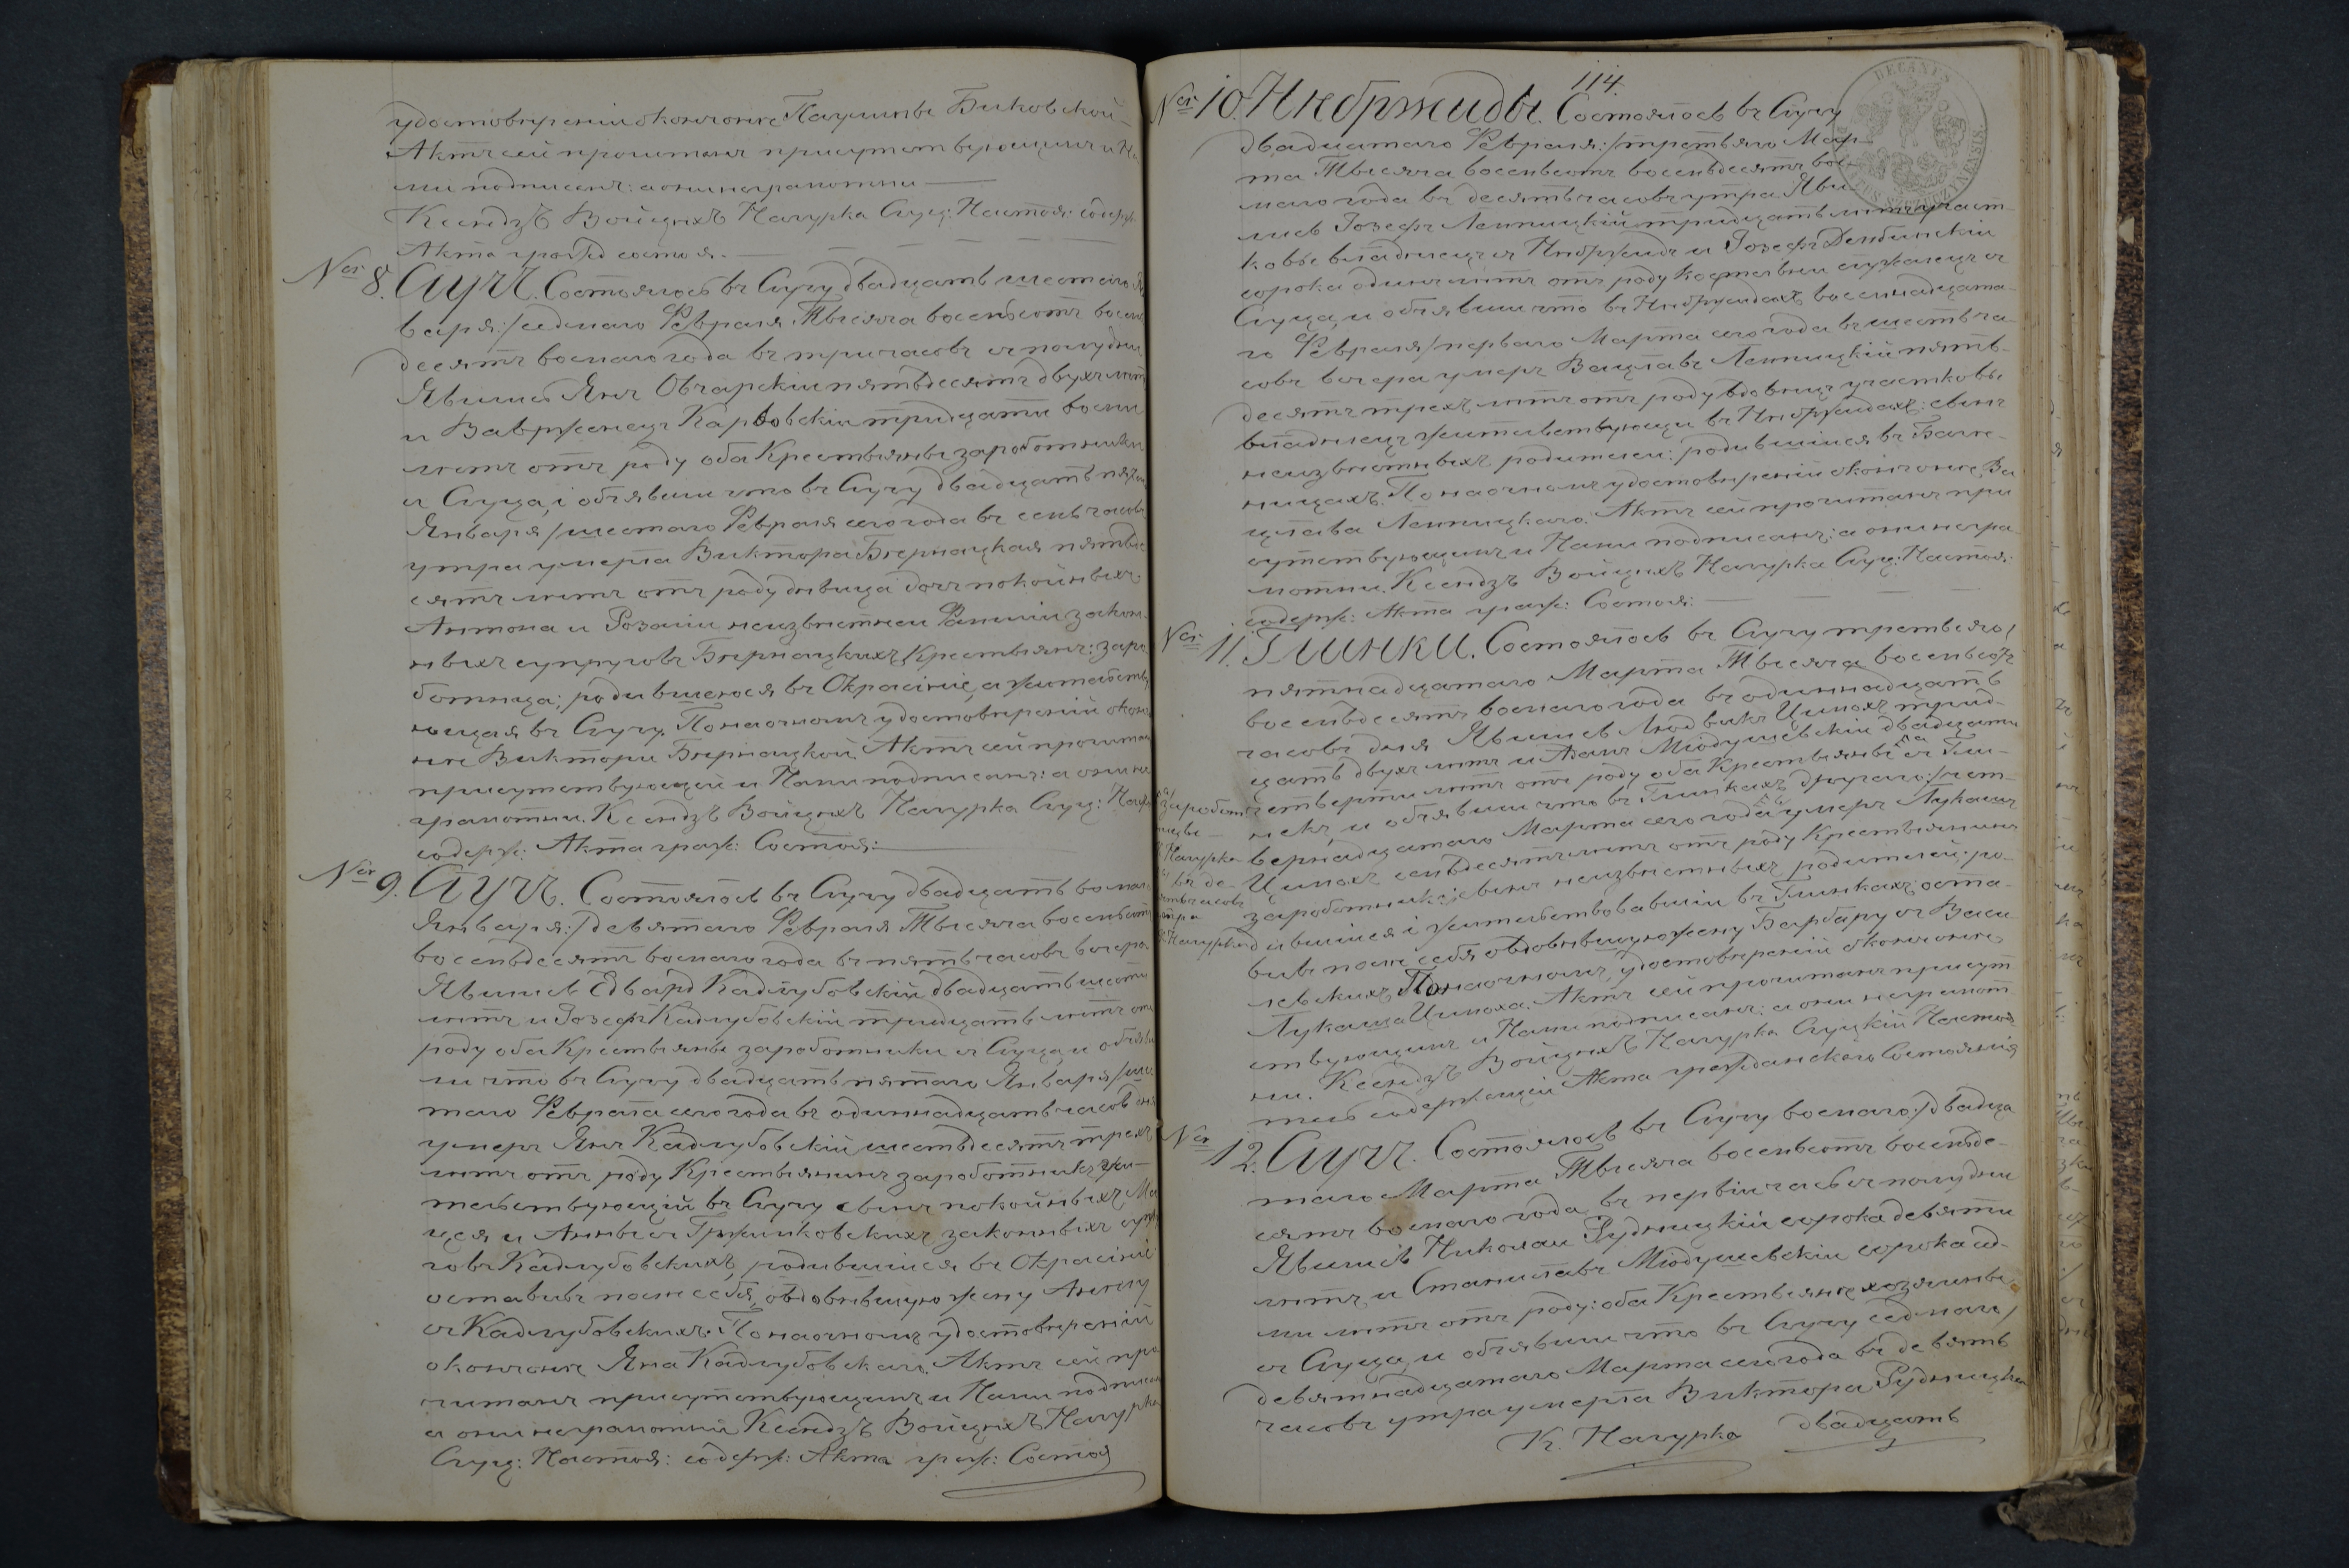 удостовѣреніи окончоніе Паулины Биковской
Актъ сей прочитанъ присутствующимъ и На-
ми подписанъ: а они неграмотны
Ксендзъ Войцѣхъ Начурка Слуц: Настоя: содерж:
Акта гражд состоя.
№ 8. Случъ. Состоялось въ Случу двадцать шестаго Ян
варя:/седмаго Февраля Тысяча восемьсотъ восемь
десятъ восмаго года въ три часовъ съ полудни
Явились Янъ Овчарскіи пятьдесятъ двухъ лѣтъ
и Вавржонецъ Карвовскіи тридцати восми
лѣтъ отъ роду оба Крестьяны заработники
съ Слуца, і объявили что въ Случу двадцать пятаго
Января/шестаго Февраля сего года въ семь часовъ
утра умерла Виктора Бѣрнацкая пятьде
сятъ лѣтъ отъ роду дѣвица дочь покойныхъ
Антона и Розаліи неизвѣстнеи Фамиліи закон
ныхъ супруговъ Бѣрнацкихъ Крестьянъ: заро
ботница; родившеюся въ Окрасініе, а жительству
ющая въ Случу. По наочномъ удостовѣреніи оконч
ніе Викторы Бѣрнацкой Актъ сей прочитан
присутствующей и Нами подписанъ: а они не
грамотни. Ксендзъ Войцѣхъ Начурка Слуц: Наст
содерж: Акта граж: Состоя:
№ 9. Случъ. Состоялось въ Случу двадцать восмаго
Января:/девятаго Февраля Тысяча восемьсотъ
восемьдесятъ восмаго года въ пять часовъ вечера
Явились Едвард Кадлубовскій двадцать шести
лѣтъ и Іозефъ Кадлубовскіи тридцать лѣтъ отъ
роду оба Крестьяны заработники съ Слуца, и объяви
ли что въ Случу двадцать пятаго Января/шес
таго Феврала сего года въ одиннадцать часовъ дня
умеръ Янъ Кадлубовскій шестьдесятъ трехъ
лѣтъ отъ роду Крестьянинъ заработникъ жи-
тельствующій въ Случу сынъ покойныхъ Ма
цея и Анны съ Гржимковскихъ законныхъ супру
говъ Кадлубовскихъ, родившіися въ Окрасініе
оставивъ поле себя, овдовѣвшую жену Анелу
съ Кадлубовскихъ. По наочномъ удостовѣреніи
окончоніе Яна Кадлубовскаго. Актъ сей про
читанъ присутствующимъ и Нами подписан
а они неграмотни Ксендзъ Войцѣхъ Начурка
Слуц: Настоя: содерж: Акта граж: Состоя
114.
№ 10. Нѣбржиды. Состоялось въ Случу
двадцатаго Февраля:/третьяго Мар-
та Тысяча восемьсотъ восемьдесятъ вос-
маго года въ десять часовъ утра Яви-
лись Іозефъ Лемпицкій тридцать лѣтъ участ-
ковые владѣлецъ съ Нѣбржидъ и Іозефъ Дембинскіи
сорока одинъ лѣтъ отъ роду костельни служенцъ съ
Слуца, и объявили что въ Нѣбржидахъ восемнадцата-
го Февраля/перваго Марта сего года въ шесть ча-
совъ вечера умеръ Вацлавъ Лемпицкій пять-
десятъ трехъ лѣтъ отъ роду вдовецъ участковы
владѣлецъ жительствующи въ Нѣбржидахъ: сынъ
неизвѣстныхъ родителеи: родившіися въ Баге-
ницахъ. По наочномъ удостовѣреніи окончоніе Ва
цлава Лемпицкаго. Актъ сей прочитанъ при
сутствующимъ и Нами подписанъ: а они негра-
мотни. Ксендзъ Войцѣхъ Начурка Слуц: Настоя:
содерж: Акта граж: Состоя:
№ 11. Глинки. Состоялось въ Случу третьяго/
пятнадцатаго Марта Тысяча восемьсотъ
восемьдесятъ восмаго года въ одиннадцать
часовъ дня Явились Людвикъ Цимохъ трид-
цать двухъ лѣтъ и Адамъ Міодушевскіи двадцати
четверти лѣтъ отъ роду оба Крестьяны съ Гли-
некъ, и объявили что въ Глинкахъ другаго:/чет-
вернадцатаго Марта сего года умеръ Лукашъ
Цимохъ семьдесятъ лѣтъ отъ роду Крестьянинъ
заработникъ; сынъ неизвѣстныхъ родителей: ро-
дившіися і жительствовавшіи въ Глинкахъ; оста-
вивъ поле себя овдовѣвшую жену Барбару съ Васи
левскихъ По наочномъ, удостовѣреніи окончоніе
Лукаша Цимоха. Актъ сей прочитанъ присут
ствующимъ и Нами подписанъ: а они неграмот
ни. Ксендзъ Войцѣхъ Начурка Слуцкій Настоя
тель содержащіи Акта гражданскаго Состоянія
заработ
ницы
К Начурка
въ де-
сять часовъ
утра
К Начурка
№ 12. Случъ. Состоялось въ Случу восмаго:/двадца
таго Марта Тысяча восемьсотъ восемьде-
сятъ восмаго года, въ первіи часъ съ полудни
Явились Николаи Рудницкіи сорока девяти
лѣтъ и Станиславъ Міодушевскіи сорока сед-
ми лѣтъ отъ роду: оба Крестьяне хозяины
съ Слуца, и объявили что въ Случу седмаго/
девятнадцатаго Марта сего года въ девять
часовъ утра умерла Виктора Рудницка
К. Начурка двадцать